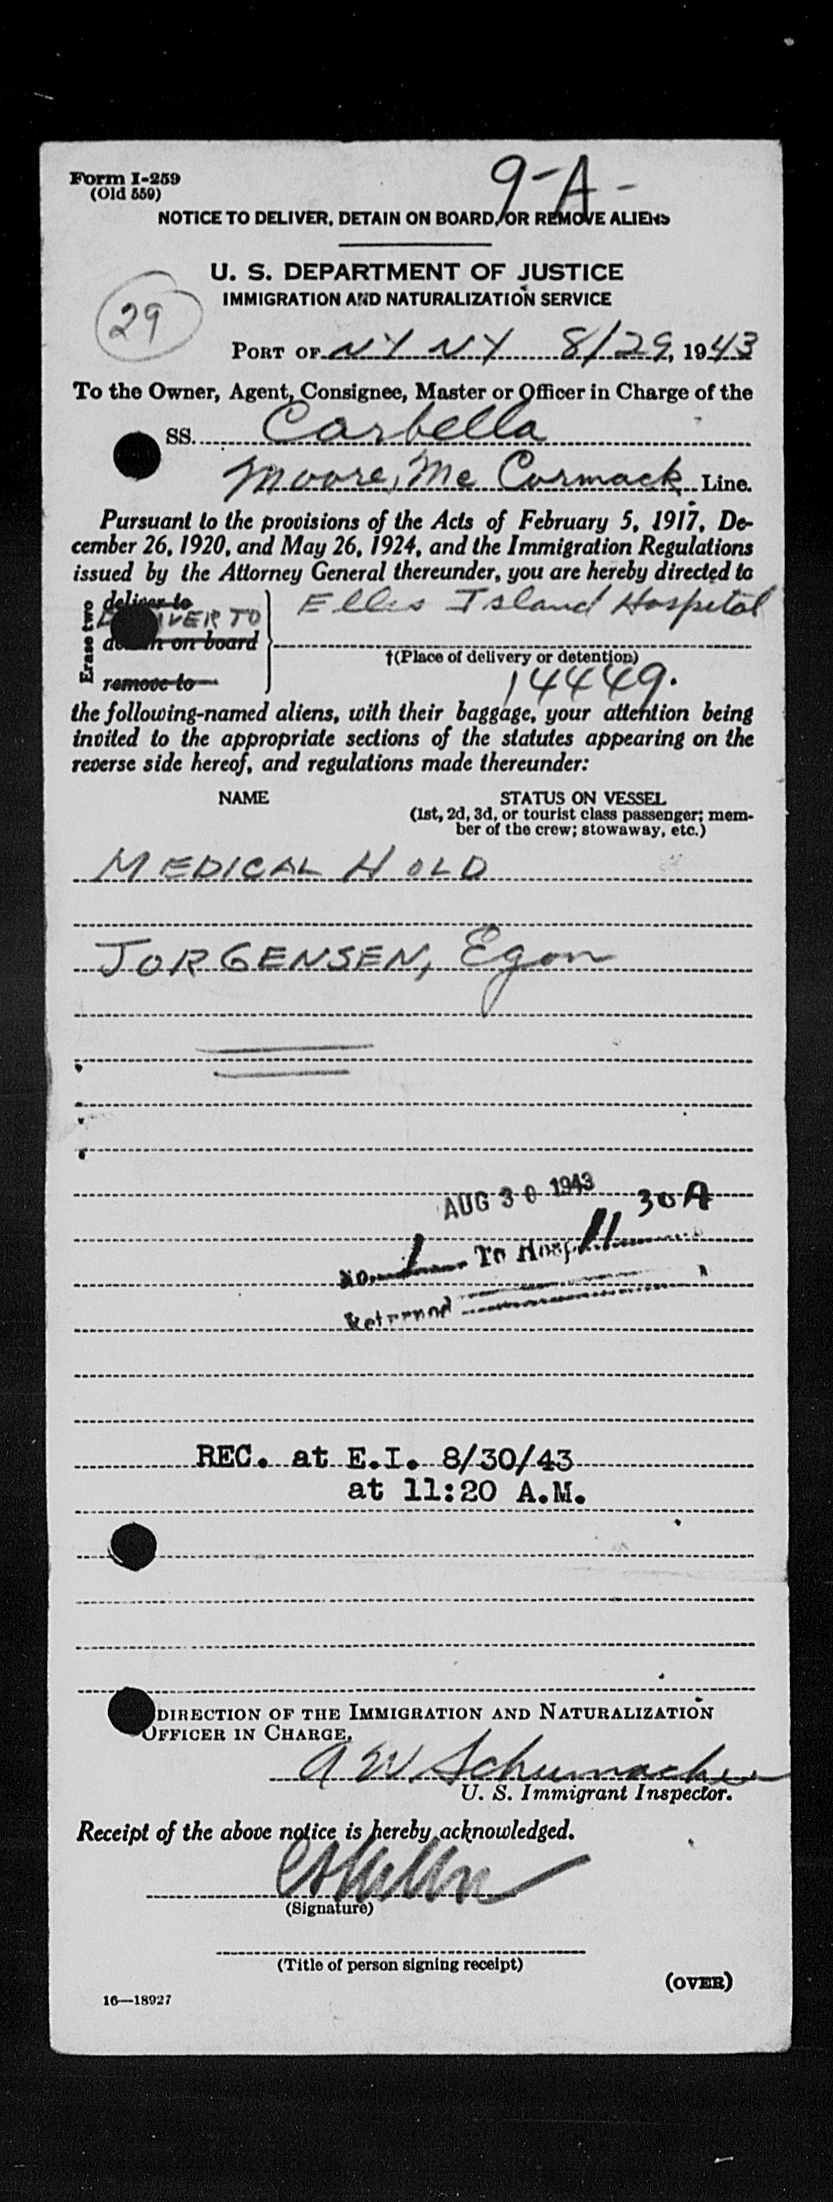 Form I-259
(Old 559)
9-A-
NOTICE TO DELIVER, DETAIN ON BOARD, OR REMOVE ALIENS
U. S. DEPARTMENT OF JUSTICE
IMMIGRATION AND NATURALIZATION SERVICE
29
PORT OF NY NY 8/29, 1943
To the Owner, Agent, Consignee, Master or Officer in Charge of the
SS. Carbella
Moore, Mc Cormack Line.
Pursuant to the provisions of the Acts of February 5, 1917, De-
cember 26, 1920, and May 26, 1924, and the Immigration Regulations
issued by the Attorney General thereunder, you are hereby directed to
Erase two
deliver to
DELIVER TO
detain on board
remove to
Ellis Island Hospital
†(Place of delivery or detention)
14449.
the following-named aliens, with their baggage, your attention being
invited to the appropriate sections of the statutes appearing on the
reverse side hereof, and regulations made thereunder:
NAME STATUS ON VESSEL
(1st, 2d, 3d, or tourist class passenger; mem-
ber of the crew; stowaway, etc.)
MEDICAL HOLD
JORGENSEN, Egon
AUG 30 1943
No. 1 To Hosp 11 30 A
Returned
REC. at E.I. 8/30/43
at 11:20 A.M.
DIRECTION OF THE IMMIGRATION AND NATURALIZATION
OFFICER IN CHARGE.
A W Schumacher
U. S. Immigrant Inspector.
Receipt of the above notice is hereby acknowledged.
(Signature)
(Title of person signing receipt)
(OVER)
16—18927